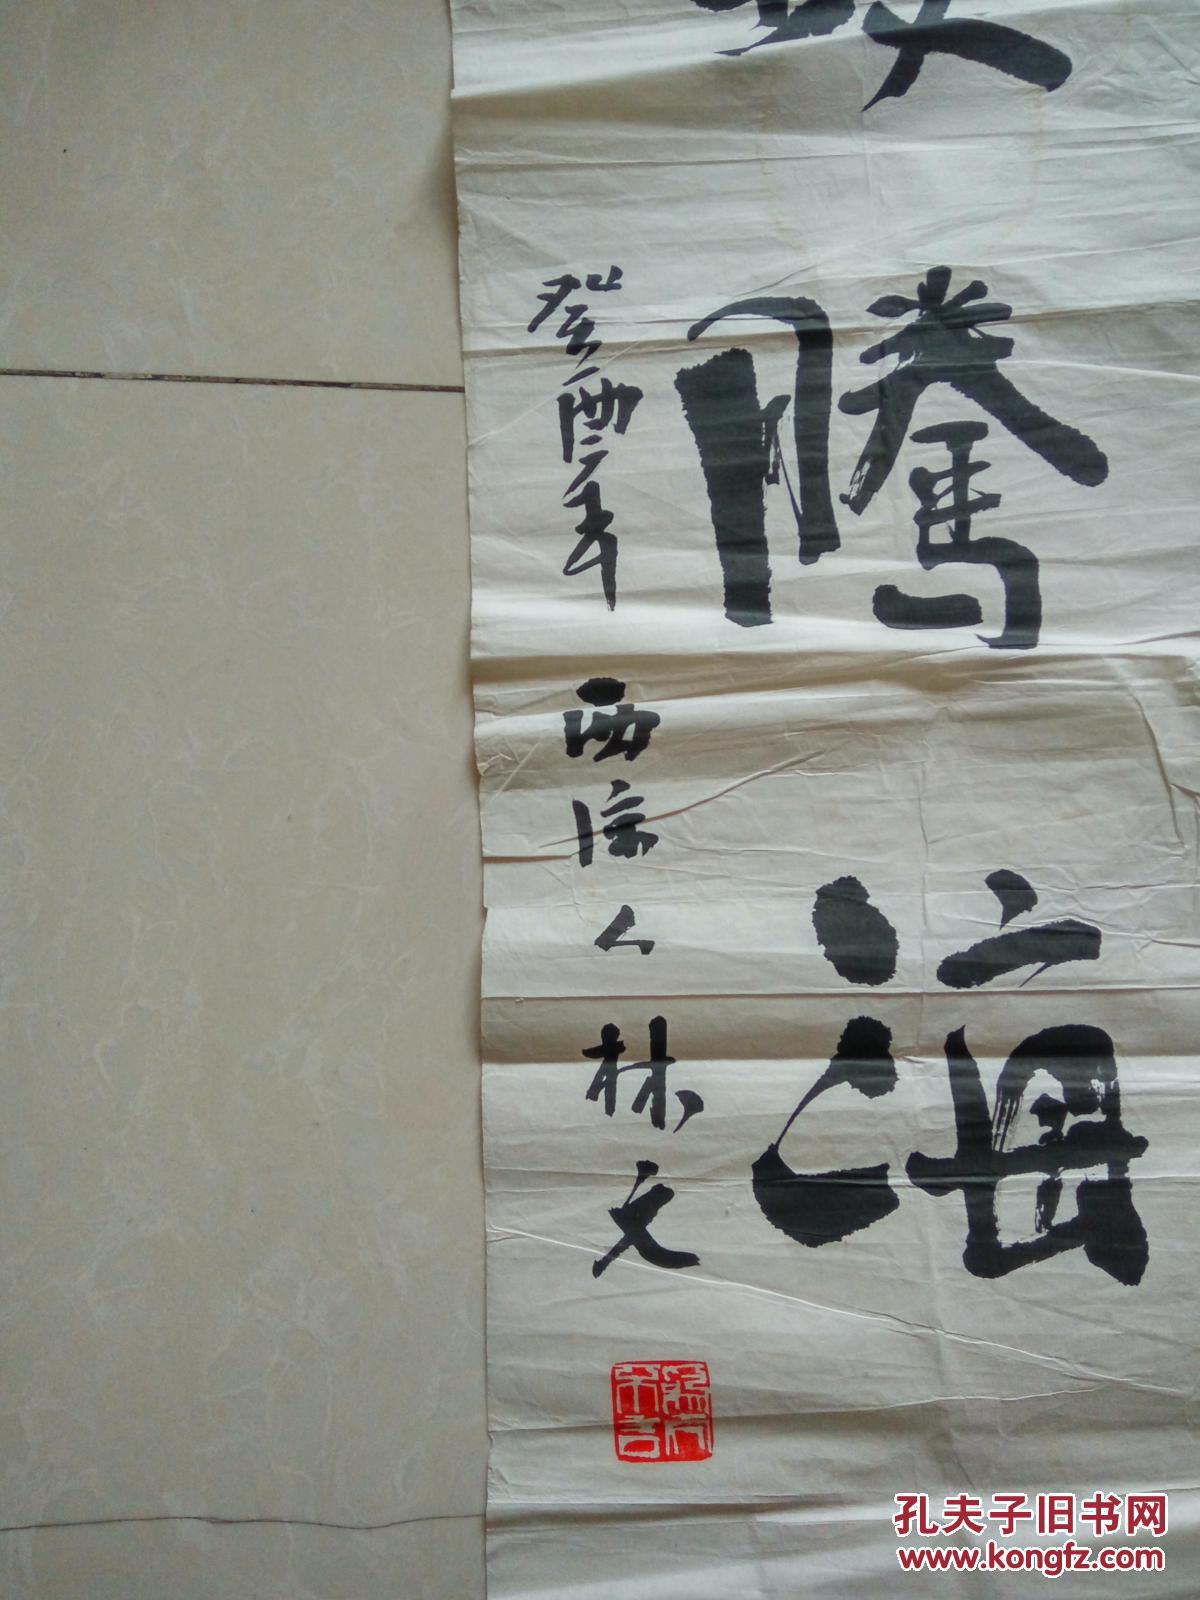 腾海
癸酉年 西凉人 林文
孔夫子旧书网
www.kongfz.com